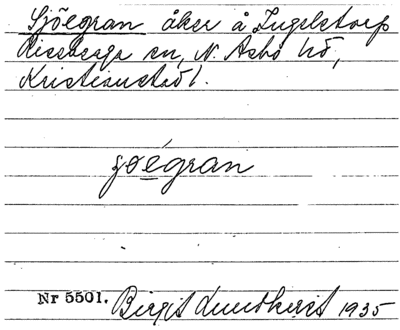 Sjöegran åker å Ingelstorp
Riseberga sn, N. Åsbo hd,
Kristianstad l.
ʃóegran
Nr 5501. Birgit Lundkvist 1935